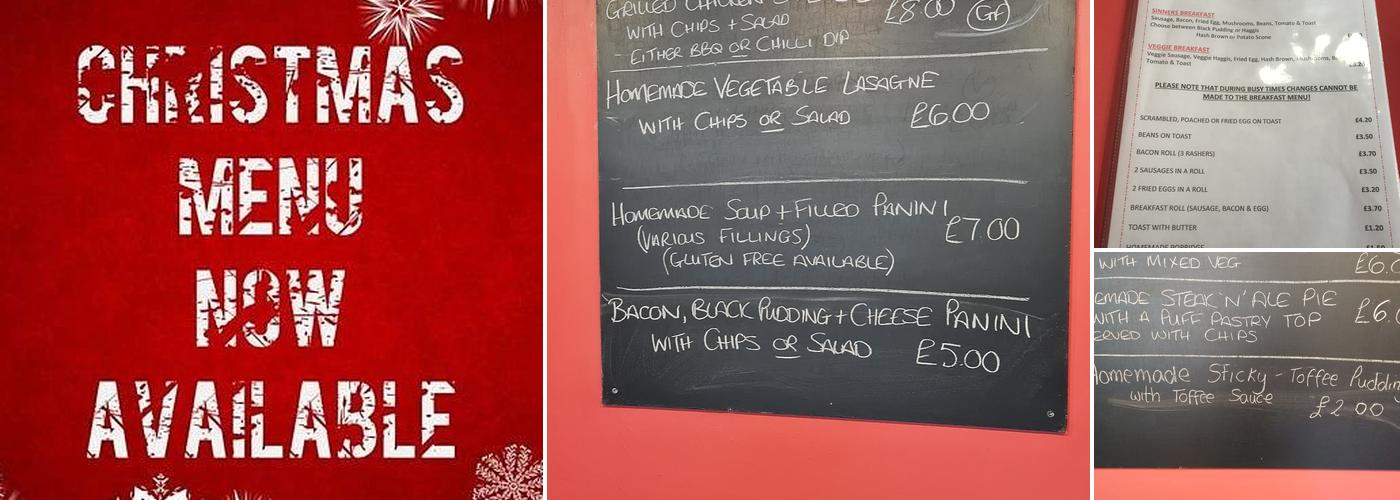 CHRISTMAS
MENU
NOW
AVAILABLE
GRILLED CHICKEN
£8.00 GF
WITH CHIPS + SALAD
- EITHER BBQ OR CHILLI DIP
HOMEMADE VEGETABLE LASAGNE
WITH CHIPS OR SALAD £6.00
HOMEMADE SOUP + FILLED PANINI
(VARIOUS FILLINGS) £7.00
(GLUTEN FREE AVAILABLE)
BACON, BLACK PUDDING + CHEESE PANINI
WITH CHIPS OR SALAD £5.00
SINNERS BREAKFAST
Sausage, Bacon, Fried Egg, Mushrooms, Beans, Tomato & Toast
Choose between Black Pudding or Haggis
Hash Brown or Potato Scone
VEGGIE BREAKFAST
Veggie Sausage, Veggie Haggis, Fried Egg, Hash Brown, Mushrooms,
Tomato & Toast
PLEASE NOTE THAT DURING BUSY TIMES CHANGES CANNOT BE
MADE TO THE BREAKFAST MENU!
SCRAMBLED, POACHED OR FRIED EGG ON TOAST £4.20
BEANS ON TOAST £3.50
BACON ROLL (3 RASHERS) £3.70
2 SAUSAGES IN A ROLL £3.50
2 FRIED EGGS IN A ROLL £3.20
BREAKFAST ROLL (SAUSAGE, BACON & EGG) £3.70
TOAST WITH BUTTER £1.20
HOMEMADE PORRIDGE
WITH MIXED VEG £6.0
EMADE STEAK 'N' ALE PIE
WITH A PUFF PASTRY TOP £6.0
ERVED WITH CHIPS
Homemade Sticky - Toffee Puddin
with Toffee Sauce £2.00